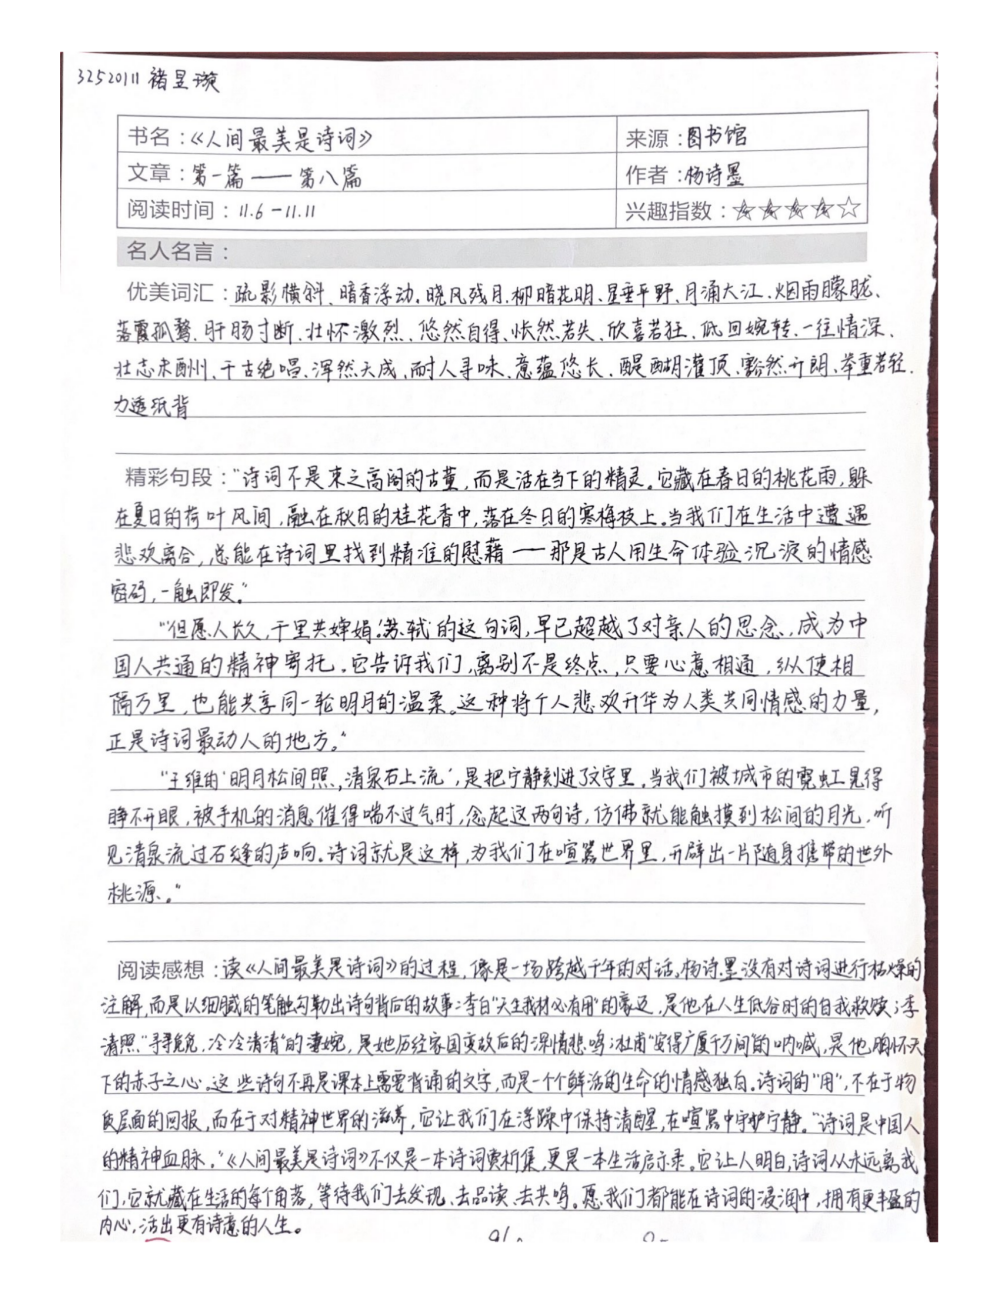 32520111 褚昱璇
书名：《人间最美是诗词》 来源：图书馆
文章：第一篇——第八篇 作者：杨诗墨
阅读时间：11.6-11.11 兴趣指数：★★★★☆
名人名言：
优美词汇：疏影横斜、暗香浮动、晓风残月、柳暗花明、星垂平野、月涌大江、烟雨朦胧、
落霞孤鹜、肝肠寸断、壮怀激烈、悠然自得、怅然若失、欣喜若狂、低回婉转、一往情深、
壮志未酬、千古绝唱、浑然天成、耐人寻味、意蕴悠长、醍醐灌顶、豁然开朗、举重若轻、
力透纸背
精彩句段：“诗词不是束之高阁的古董，而是活在当下的精灵。它藏在春日的桃花雨，躲
在夏日的荷叶风间，融在秋日的桂花香中，落在冬日的寒梅枝上。当我们在生活中遭遇
悲欢离合，总能在诗词里找到精准的慰藉——那是古人用生命体验沉淀的情感
密码，一触即发。”
“‘但愿人长久，千里共婵娟’苏轼的这句词，早已超越了对亲人的思念，成为中
国人共通的精神寄托。它告诉我们，离别不是终点，只要心意相通，纵使相
隔万里，也能共享同一轮明月的温柔。这种将个人悲欢升华为人类共同情感的力量，
正是诗词最动人的地方。”
“王维的‘明月松间照，清泉石上流’，是把宁静刻进了文字里。当我们被城市的霓虹晃得
睁不开眼，被手机的消息催得喘不过气时，念起这两句诗，仿佛就能触摸到松间的月光，听
见清泉流过石缝的声响。诗词就是这样，为我们在喧嚣世界里，开辟出一片随身携带的世外
桃源。”
阅读感想：读《人间最美是诗词》的过程，像是一场跨越千年的对话。杨诗墨没有对诗词进行枯燥的
注解，而是以细腻的笔触勾勒出诗句背后的故事：李白“天生我材必有用”的豪迈，是他在人生低谷时的自我救赎；李
清照“寻寻觅觅，冷冷清清”的凄婉，是她历经家国变故后的深情悲鸣；杜甫“安得广厦千万间”的呐喊，是他胸怀天
下的赤子之心。这些诗句不再是课本上需要背诵的文字，而是一个个鲜活的生命的情感独白。诗词的“用”，不在于物
质层面的回报，而在于对精神世界的滋养，它让我们在浮躁中保持清醒，在喧嚣中守护宁静。“诗词是中国人
的精神血脉。”《人间最美是诗词》不仅是一本诗词赏析集，更是一本生活启示录。它让人明白，诗词从未远离我
们，它就藏在生活的每个角落，等待我们去发现、去品读、去共鸣。愿我们都能在诗词的浸润中，拥有更丰盈的
内心，活出更有诗意的人生。